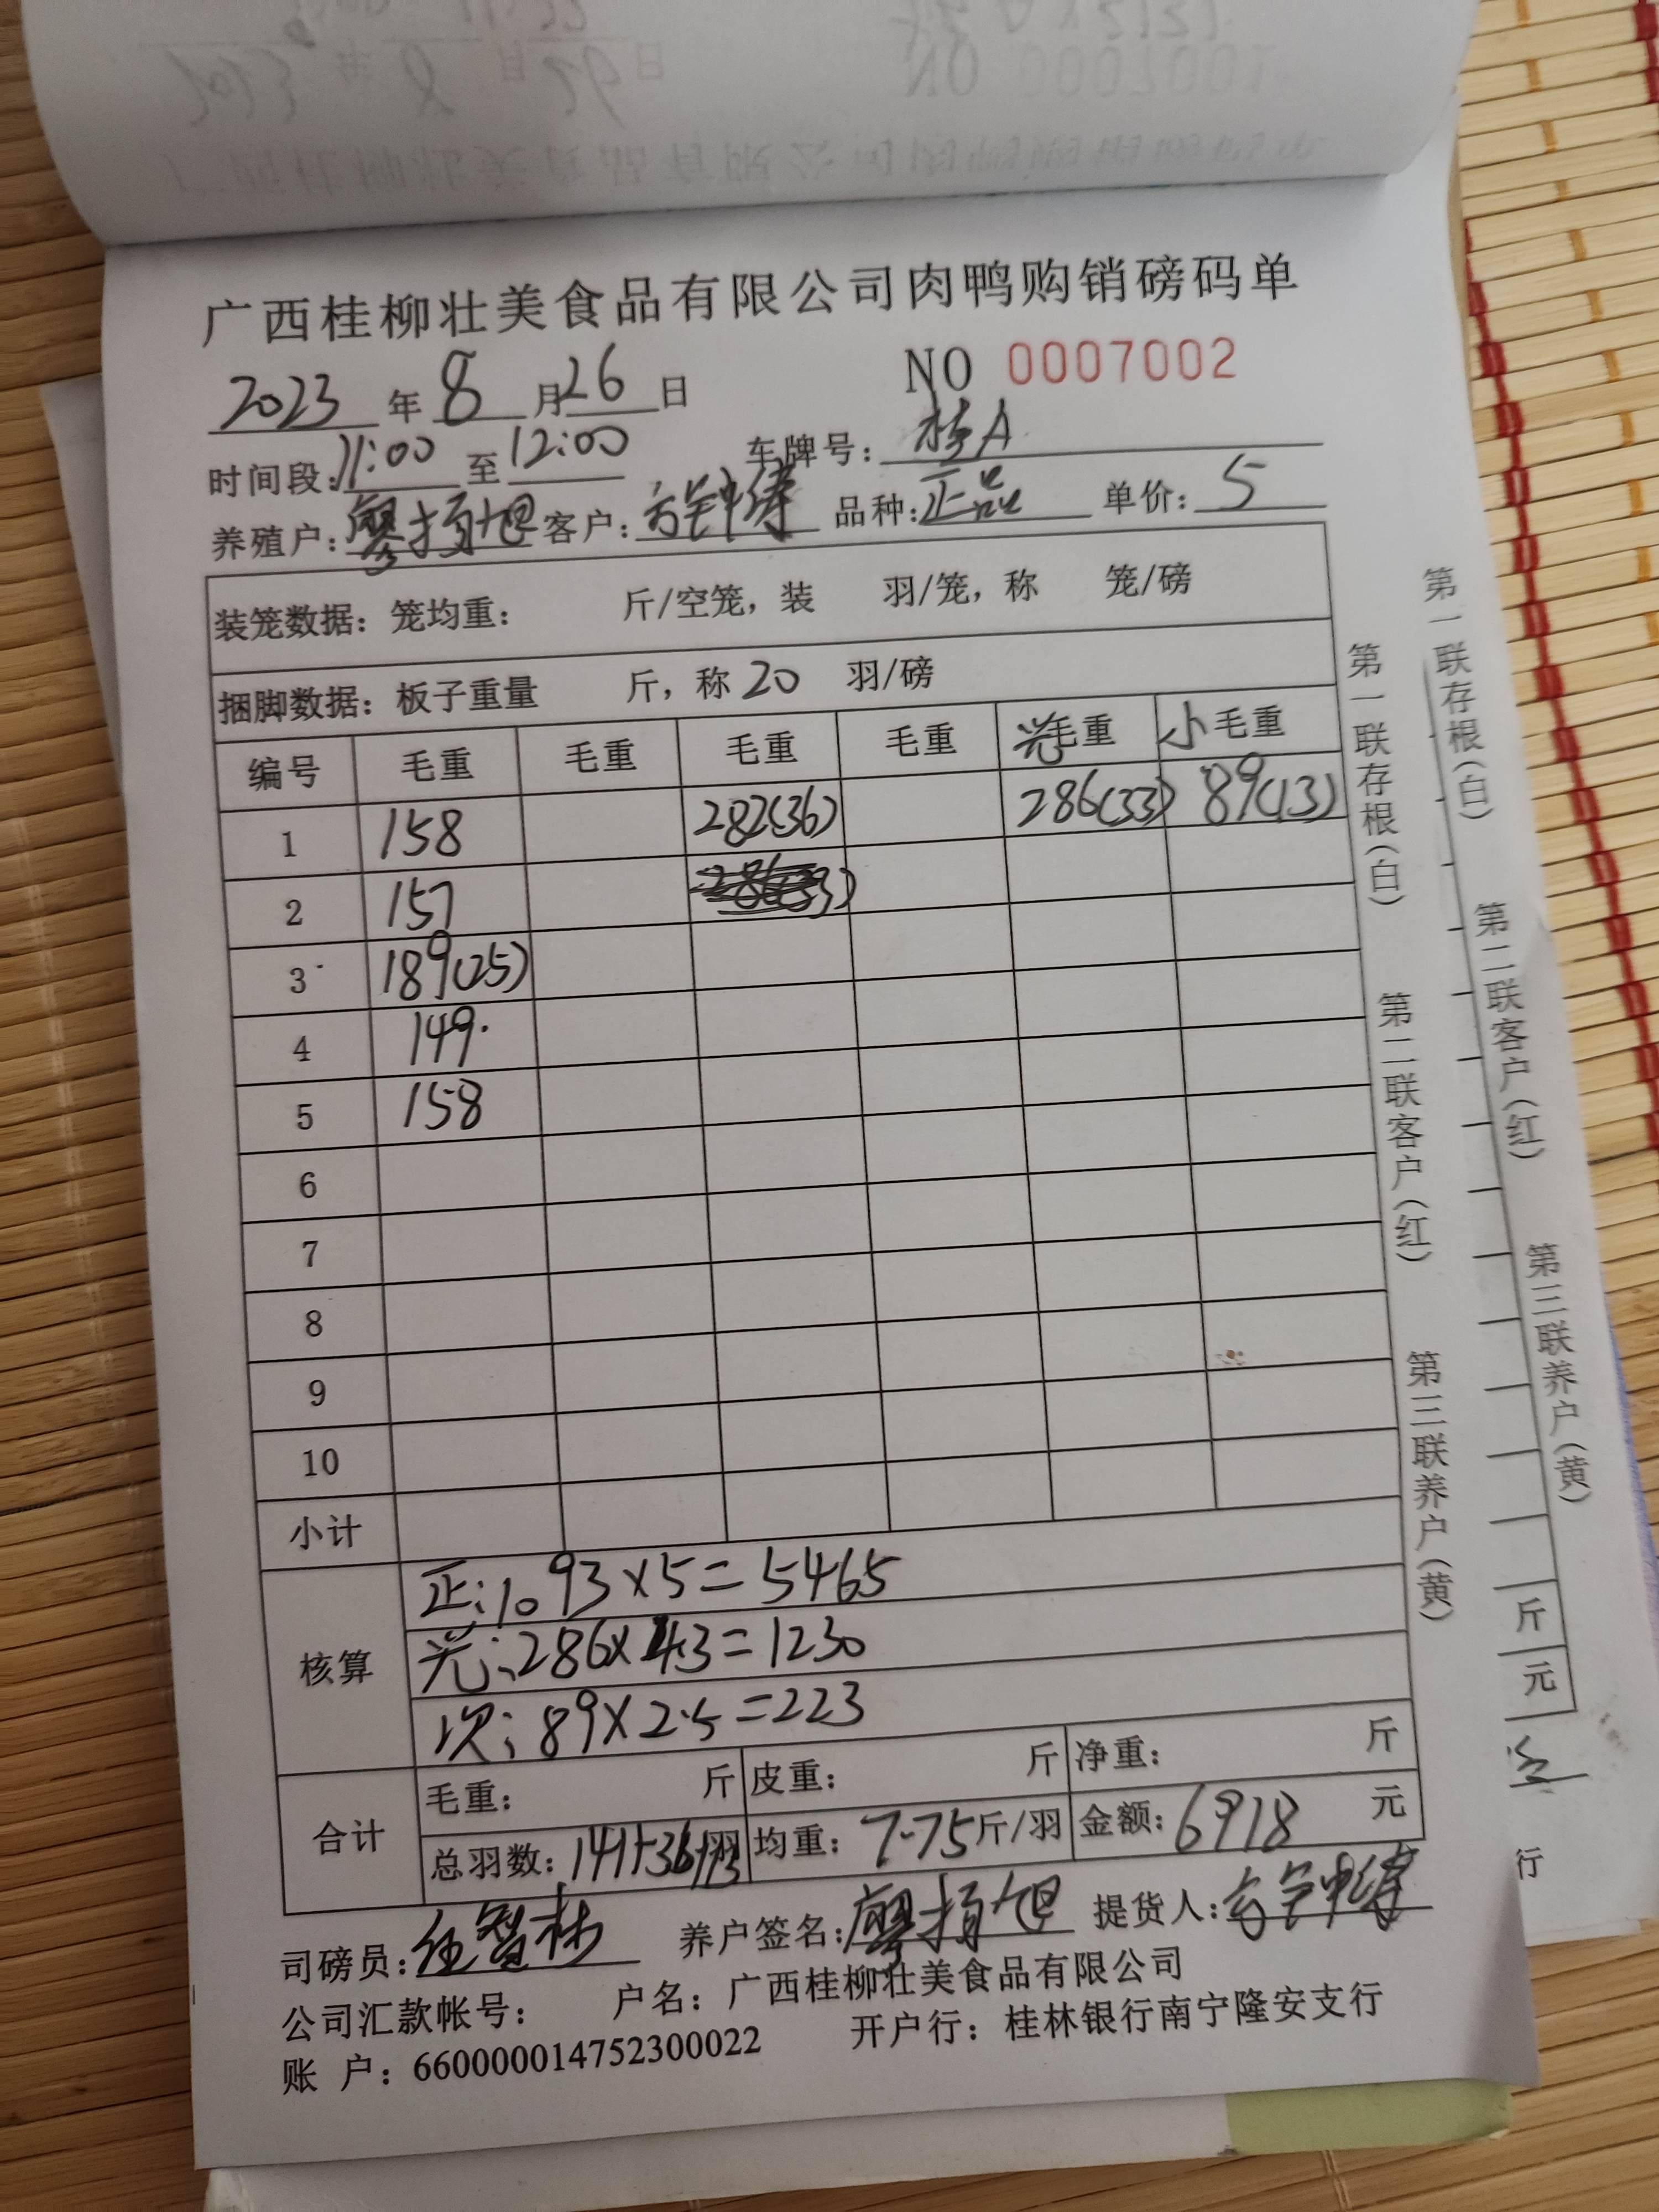 广西桂柳壮美食品有限公司肉鸭购销磅码单
2023 年 8 月 26 日 NO 0007002
时间段: 11:00 至 12:00 车牌号: 桂A
养殖户: 客户: 方钟涛 品种: 正品 单价: 5
装笼数据: 笼均重: 斤/空笼, 装 羽/笼, 称 笼/磅
捆脚数据: 板子重量 斤, 称 20 羽/磅
编号 毛重 毛重 毛重 毛重 光毛重 小毛重
1 158 282(36) 286(33) 89(13)
2 157
3 189(25)
4 149.
5 158
6
7
8
9
10
小计
核算
正: 1093×5=5465
光: 286×4.3=1230
次: 89×2.5=223
合计
毛重: 斤 皮重: 斤 净重: 斤
总羽数: 141+36 羽 均重: 7.75 斤/羽 金额: 6918 元
司磅员: 任智林 养户签名: 提货人: 方钟涛
公司汇款帐号: 户名: 广西桂柳壮美食品有限公司
账 户: 660000014752300022 开户行: 桂林银行南宁隆安支行
第一联存根(白) 第二联客户(红) 第三联养户(黄)
第一联存根(白) 第二联客户(红) 第三联养户(黄)
斤
元
行